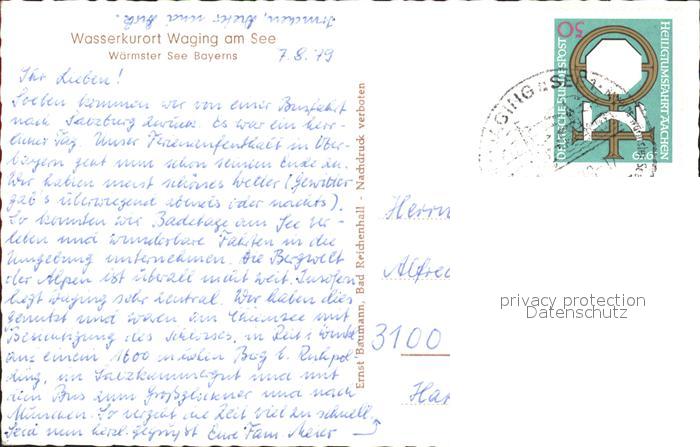 Irmchen, Dieter und Gitte.
Wasserkurort Waging am See
Wärmster See Bayerns
7.8.79
Ihr Lieben!
Soeben kommen wir von einer Busfahrt
nach Salzburg zurück. Es war ein herr-
licher Tag. Unser Ferienaufenthalt in Ober-
bayern geht nun schon seinem Ende zu.
Wir haben meist schönes Wetter (Gewitter
gab's überwiegend abends oder nachts).
So konnten wir Badetage am See ver-
leben und wunderbare Fahrten in die
Umgebung unternehmen. Die Bergwelt
der Alpen ist überall nicht weit. Insofern
liegt Waging sehr zentral. Wir haben dies
genutzt und waren am Chiemsee mit
Besichtigung des Schlosses, in
auf einem 1600 m hohen Berg b. Ruhpol-
ding, im Salzkammergut und mit
dem Bus zum Großglockner und nach
München. So vergeht die Zeit viel zu schnell.
Seid nun herzl. gegrüßt Eure Fam. Meier
Ernst Baumann, Bad Reichenhall - Nachdruck verboten
DEUTSCHE BUNDESPOST
50
HEILIGTUMSFAHRT AACHEN
1979
WAGING a. SEE
Herrn
Alfred
3100
privacy protection
Datenschutz